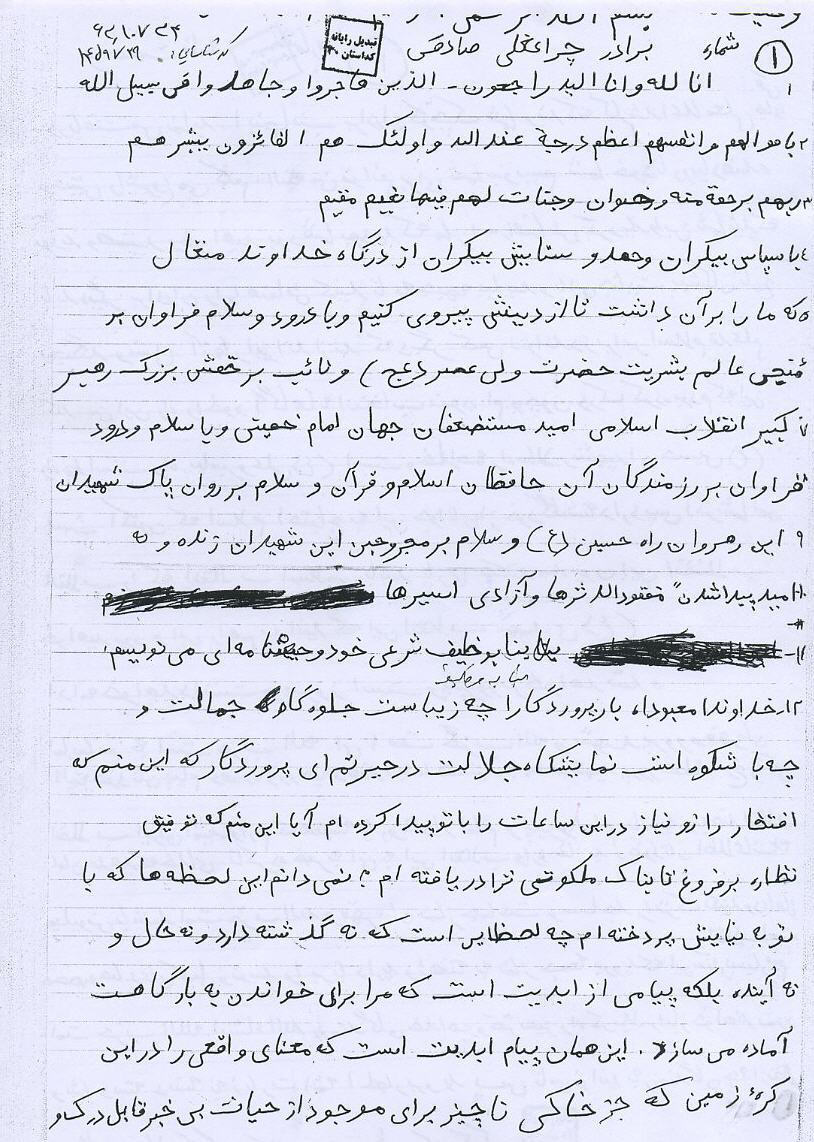 ۹۲/۱۰/۷ ۲۳۴
کد شناسایی: ۱۴۵۹۷۲۹
تبدیل رایانه
کداستان ۳۰
① شماره برادر چراغعلی صادقی
۱ انا لله وانا الیه راجعون - الذین هاجروا و جاهدوا فی سبیل الله
۲ باموالهم وانفسهم اعظم درجة عند الله و اولئک هم الفائزون یبشرهم
۳ ربهم برحمة منه و رضوان وجنات لهم فیها نعیم مقیم
۴ با سپاس بیکران وحمد و ستایش بیکران از درگاه خداوند متعال
۵ که ما را بر آن داشت تا از دینش پیروی کنیم و با درود و سلام فراوان بر
۶ منجی عالم بشریت حضرت ولی عصر (عج) و نائب برحقش بزرگ رهبر
۷ کبیر انقلاب اسلامی امید مستضعفان جهان امام خمینی و با سلام و درود
۸ فراوان بر رزمندگان آن حافظان اسلام و قرآن و سلام بر روان پاک شهیدان
۹ این رهروان راه حسین (ع) و سلام بر مجروحین این شهیدان زنده و به
۱۰ امید پیدا شدن مفقودالاثرها و آزادی اسیرها
۱۱ بنا بوظیفه شرعی خود وصیتنامه ای می نویسم
۱۲ خداوندا، معبودا، بار پروردگارا چه زیباست جلوه گاه جمالت و
چه با شکوه است نمایشگاه جلالت در حیرتم ای پروردگار که این منم که
افتخار راز و نیاز در این ساعات را با تو پیدا کرده ام آیا این منم که توفیق
نظاره بر فروغ تابناک ملکوتی ترا دریافته ام؟ نمی دانم این لحظه ها که با
تو به نیایش پرداخته ام چه لحظاتی است که نه گذشته دارد و نه حال و
نه آینده، بلکه پیامی از ابدیت است که مرا برای خواندن به بارگاهت
آماده می سازد. این همان پیام ابدیت است که معنای واقعی را در این
کرهٔ زمین که جز خاکی ناچیز برای موجود از حیات بی خبر قابل درک و